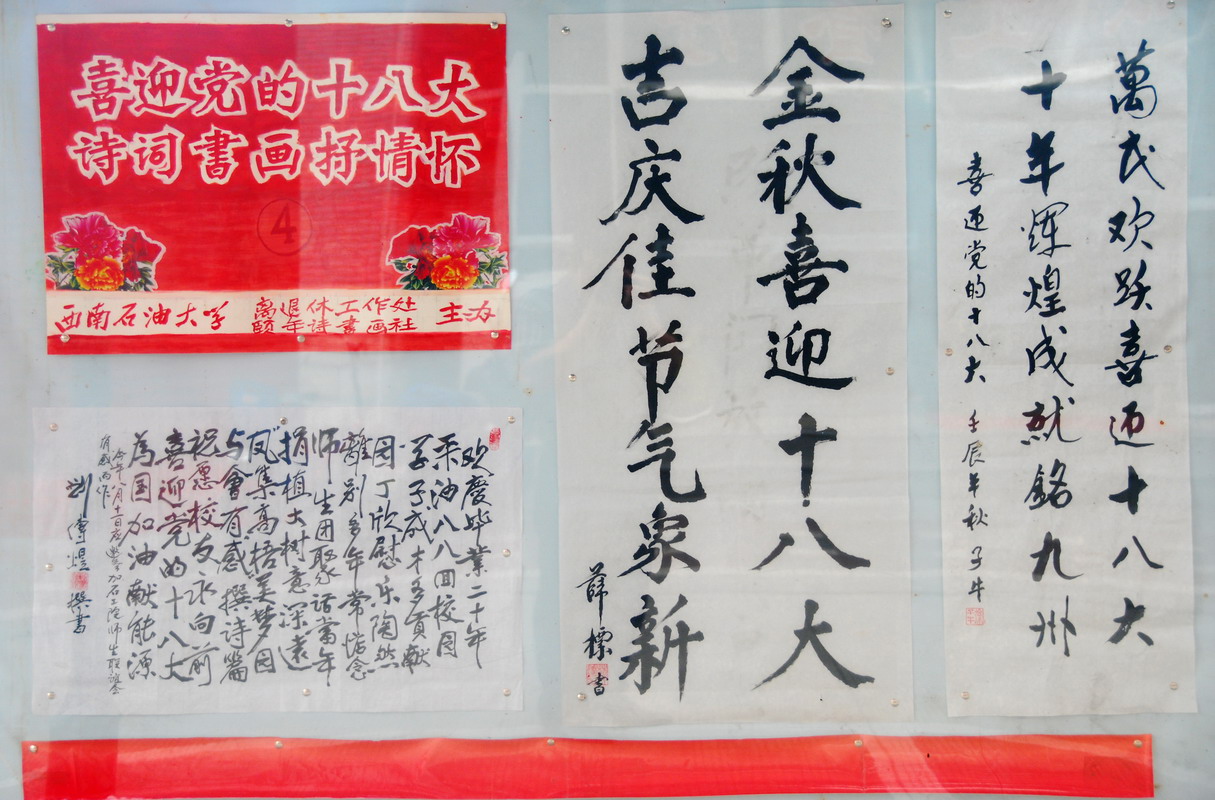 喜迎党的十八大
诗词書画抒情怀
④
西南石油大学 离退休工作处 主办
颐年诗書画社
欢慶毕业二十年
采油八八回校园
学子成才多贡献
园丁欣慰乐陶然
離别多年常惦念
师生团聚话当年
捐植大树意深遠
凤集高梧美梦圆
与會有感撰诗篇
祝愿校友永向前
喜迎党的十八大
為国加油献能源
今年八月十一日应邀参加石工院师生联谊会
有感而作
刘傳煜 撰書
金秋喜迎十八大
吉庆佳节气象新
薛標書
萬民欢跃喜迎十八大
十年辉煌成就銘九州
喜迎党的十八大 壬辰年秋 子牛